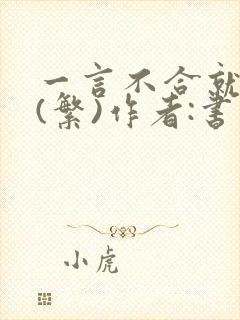 一言不合就
(繁)作者:書
小虎